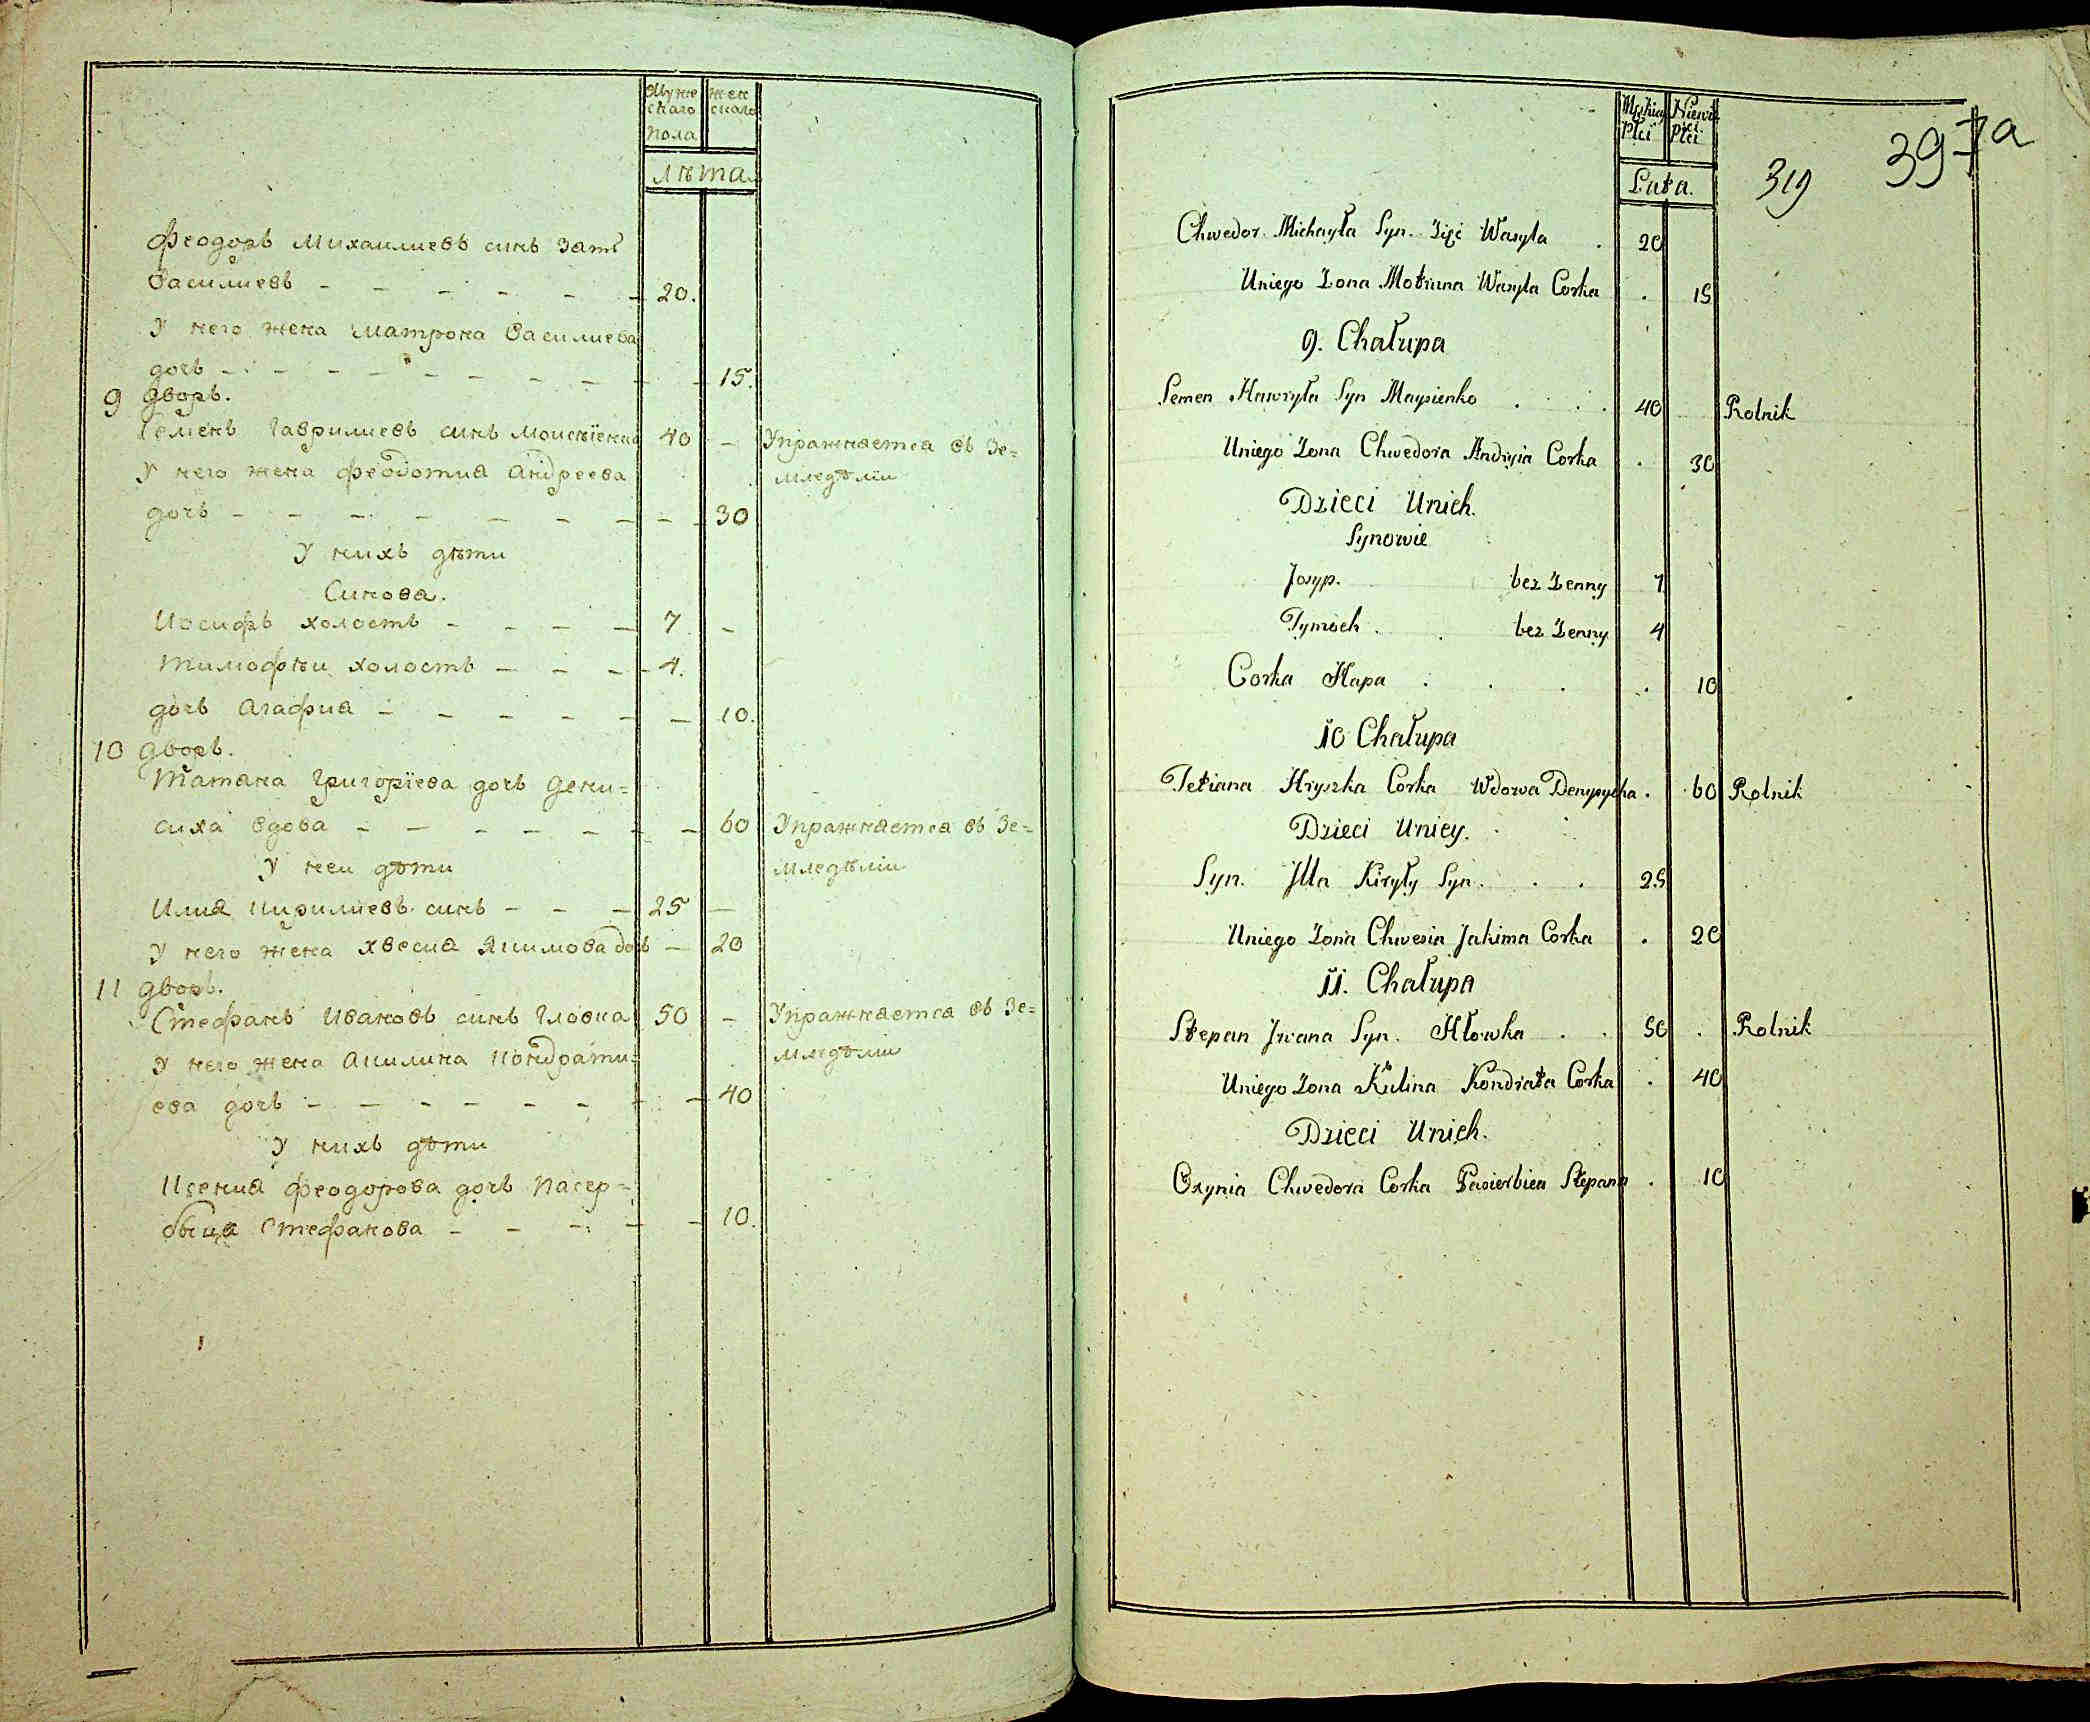 Муже
скаго
пола
жен
скаго
лѣта.
Феодоръ Михаилиевъ синъ зать
Василиевъ - - - - - - 20.
У него жена Матрона Василиева
дочь - - - - - - - - 15.
9 дворъ.
Семенъ Гавримиевъ синъ Моисѣенко 40 - Упражняется въ зе=
У него жена Феодотия Андреева мледѣлїи
дочь - - - - - - - - 30
У нихъ дѣти
Синова.
Иосифъ холостъ - - - - 7 -
Тимофѣи холостъ - - - - 4.
дочь Агафия - - - - - - 10.
10 дворъ.
Татяна Григорїева дочь Дени=
сиха вдова - - - - - - - 60 Упражняется въ зе=
У неи дѣти мледѣлїи
Илия Кирилиевъ синъ - - - 25 -
У него жена Хвесия Якимова дочь - 20
11 дворъ.
Стефанъ Ивановъ синъ Гловка 50 - Упражняется въ зе=
У него жена Акилина Кондрати= мледѣлїи
ева дочь - - - - - - - - 40
У нихъ дѣти
Ксения Феодорова дочь пасер=
бица Стефанова - - - - - 10.
Męskiey
Płci
Niewi
Płci
Lata.
319
397a
Chwedor Michayła Syn. Zięć Wasyla . 20
Uniego Zona Motruna Wasyla Corka . 15
9. Chałupa
Semen Hawryła Syn Maysienko . . . . 40 Rolnik
Uniego Zona Chwedora Andryia Corka . 30
Dzieci Unich.
Synowie
Josyp. bez Zenny 7
Tymoch . . bez Zenny 4
Corka Hapa . . . . 10
10 Chałupa
Tetiana Hryszka Corka Wdowa Denysycha . 60 Rolnik
Dzieci Uniey.
Syn. Jlla Kiryły Syn. . . 25
Uniego Zona Chwesia Jakima Corka . 20
11. Chałupa
Stepan Jwana Syn. Hłowka . . 50 . Rolnik
Uniego Zona Kulina Kondrata Corka . 40
Dzieci Unich.
Oxynia Chwedora Corka Pasierbica Stepana . 10